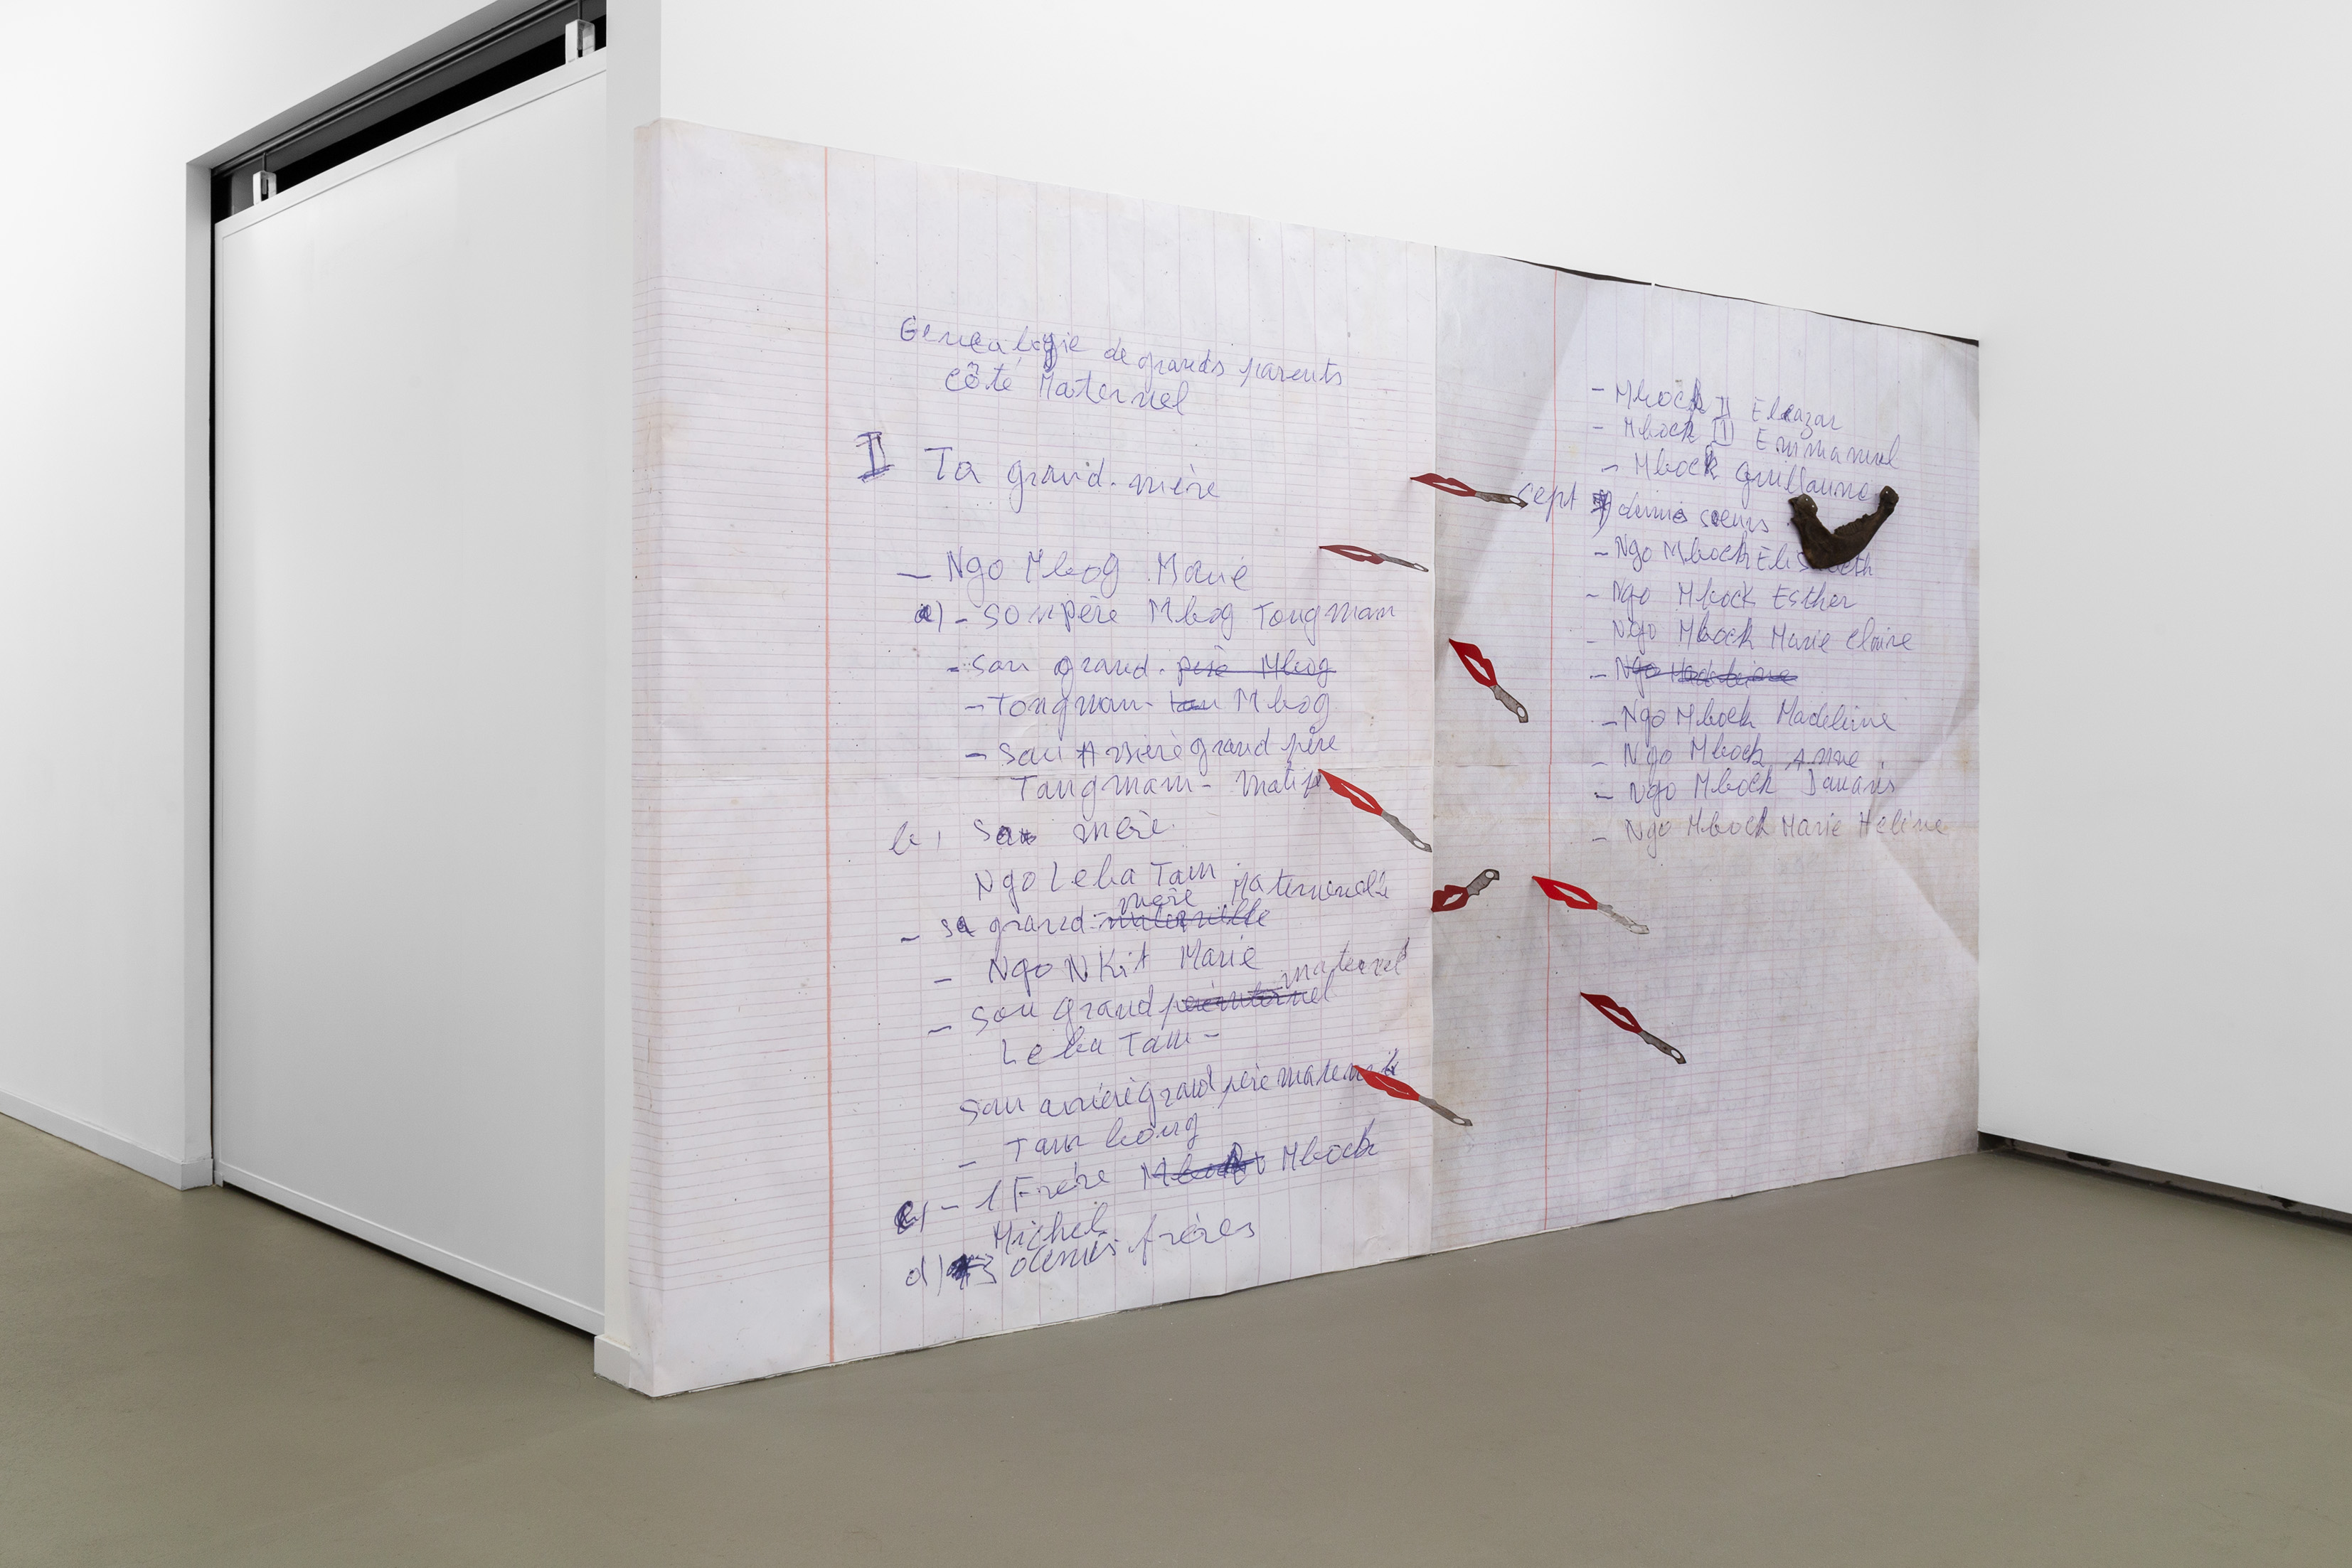 Genealogie de grands parents
Côté Maternel
II Ta grand-mère
- Ngo Mbog Marie
a) - son père Mbog Tongmam
- son grand-père Mbog
- Tongmam- Mbog
- son Arrière grand père
Tangmam- Matip
b) Sa mère
Ngo Leba Tam
mère Maternelle
- sa grand-
- Ngo NKit Marie
maternel
- son Grand
Leba Tam-
Son arrière grand père maternel
- Tam bong
c) - 1 Frère Mbock
Michel
d) 3 demis frères
- Mbock II Eleazar
- Mbock III Emmanuel
- Mbock Guillaume
sept demis sœurs
- Ngo Mbock Elisabeth
- Ngo Mbock Esther
- Ngo Mbock Marie Claire
- Ngo
- Ngo Mbock Madeleine
- Ngo Mbock Anne
- Ngo Mbock Damaris
- Ngo Mbock Marie Hélène